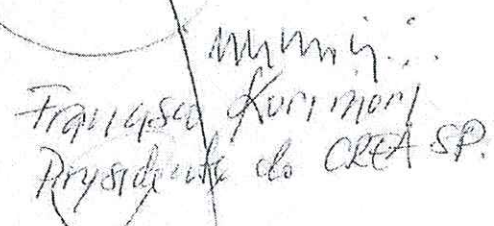 Francisco Kurimori
Presidente do CREA SP.